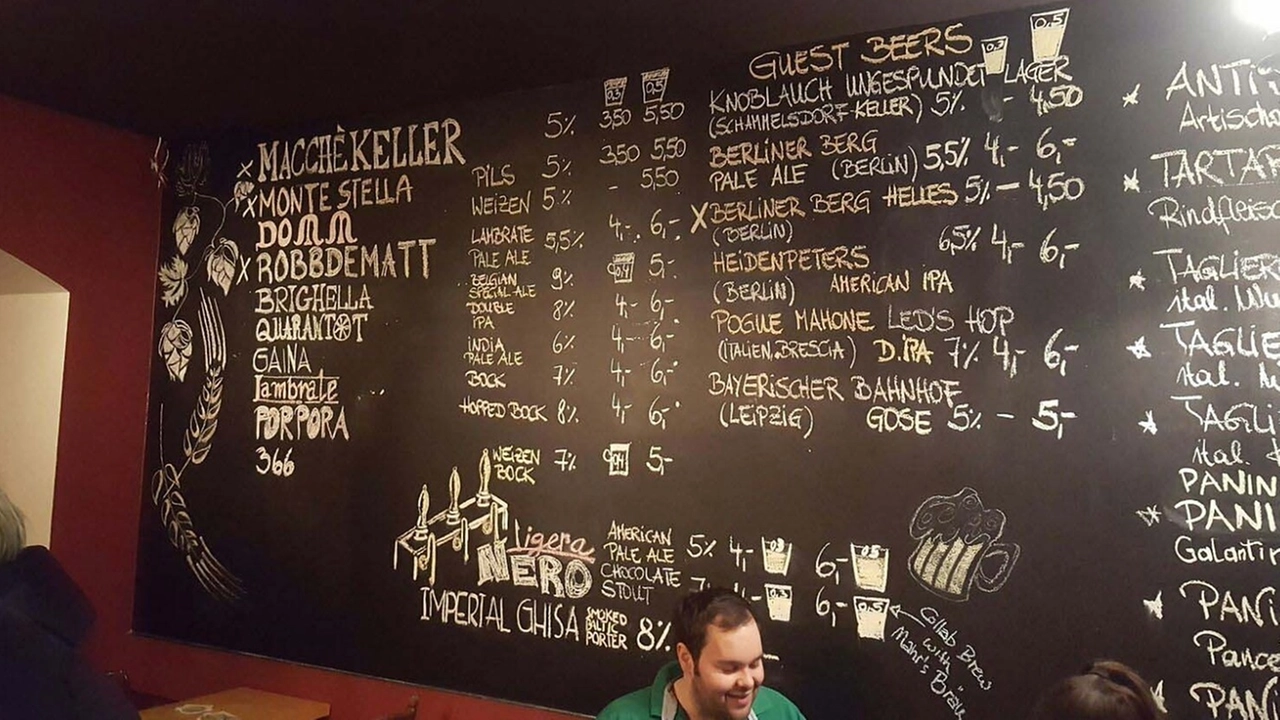 0,3 0,5
× MACCHÈKELLER 5% 3,50 5,50
× MONTE STELLA PILS 5% 3,50 5,50
DOMM WEIZEN 5% - 5,50
× ROBBDEMATT LAMBRATE PALE ALE 5,5% 4,- 6,-
BRIGHELLA BELGIAN SPECIAL ALE 9% 0,4 5,-
QUARANTOT DOUBLE IPA 8% 4,- 6,-
GAINA INDIA PALE ALE 6% 4,- 6,-
lambrate BOCK 7% 4,- 6,-
PORPORA HOPPED BOCK 8% 4,- 6,-
366 WEIZEN BOCK 7% 0,4 5,-
ligera AMERICAN PALE ALE 5% 4,- 0,3 6,- 0,5
NERO CHOCOLATE STOUT 0,3 6,- 0,5
IMPERIAL GHISA SMOKED BALTIC PORTER 8%
GUEST BEERS 0,3 0,5
KNOBLAUCH UNGESPUNDET LAGER
(SCHAMMELSDORF-KELLER) 5% - 4,50
BERLINER BERG
PALE ALE (BERLIN) 5,5% 4,- 6,-
X BERLINER BERG HELLES 5% — 4,50
(BERLIN)
HEIDENPETERS 6,5% 4,- 6,-
(BERLIN) AMERICAN IPA
POGUE MAHONE LED'S HOP
(ITALIEN, BRESCIA) D.IPA 7% 4,- 6,-
BAYERISCHER BAHNHOF
(LEIPZIG) GOSE 5% - 5,-
Collab Brew
with
Mahr's Bräu
Artisch
Rindfleisc
TAGLIE
ital.
TAGLI
ital.
PANIN
PANI
Galanti
PANI
Pance
PANI